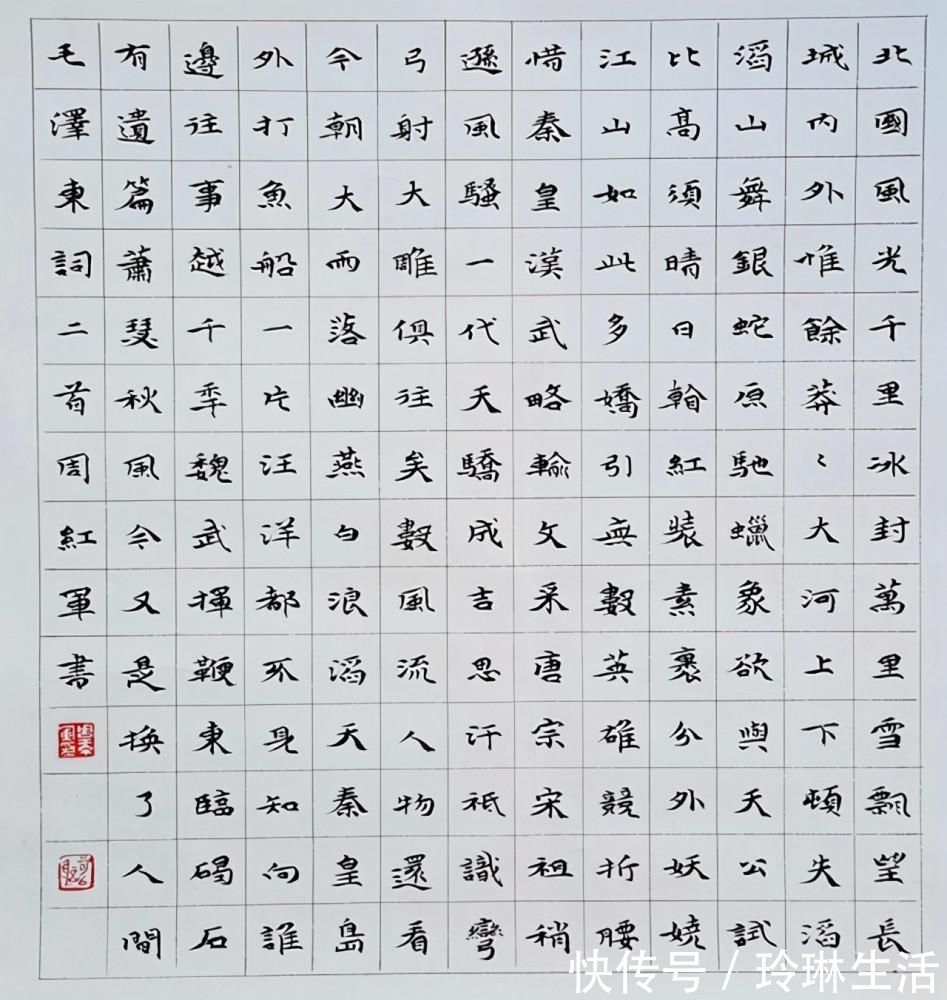 北國風光千里冰封萬里雪飄望長
城內外惟餘莽〻大河上下頓失滔
滔山舞銀蛇原馳蠟象欲與天公試
比高須晴日䀍紅裝素裹分外妖嬈
江山如此多嬌引無數英雄競折腰
惜秦皇漢武略輸文采唐宗宋祖稍
遜風騷一代天驕成吉思汗祇識彎
弓射大雕俱往矣數風流人物還看
今朝大雨落幽燕白浪滔天秦皇島
外打魚船一片汪洋都不見知向誰
邊往事越千年魏武揮鞭東臨碣石
有遺篇蕭瑟秋風今又是換了人間
毛澤東詞二首周紅軍書
快传号 / 玲琳生活